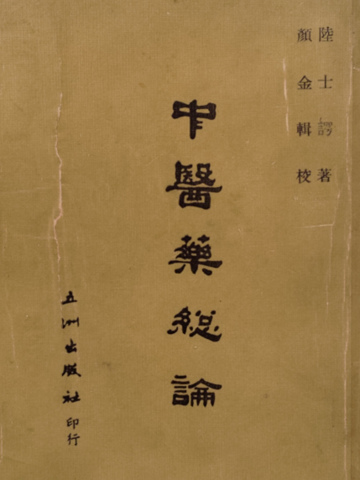 陸士諤著
顏金輯校
中醫藥總論
五洲出版社印行